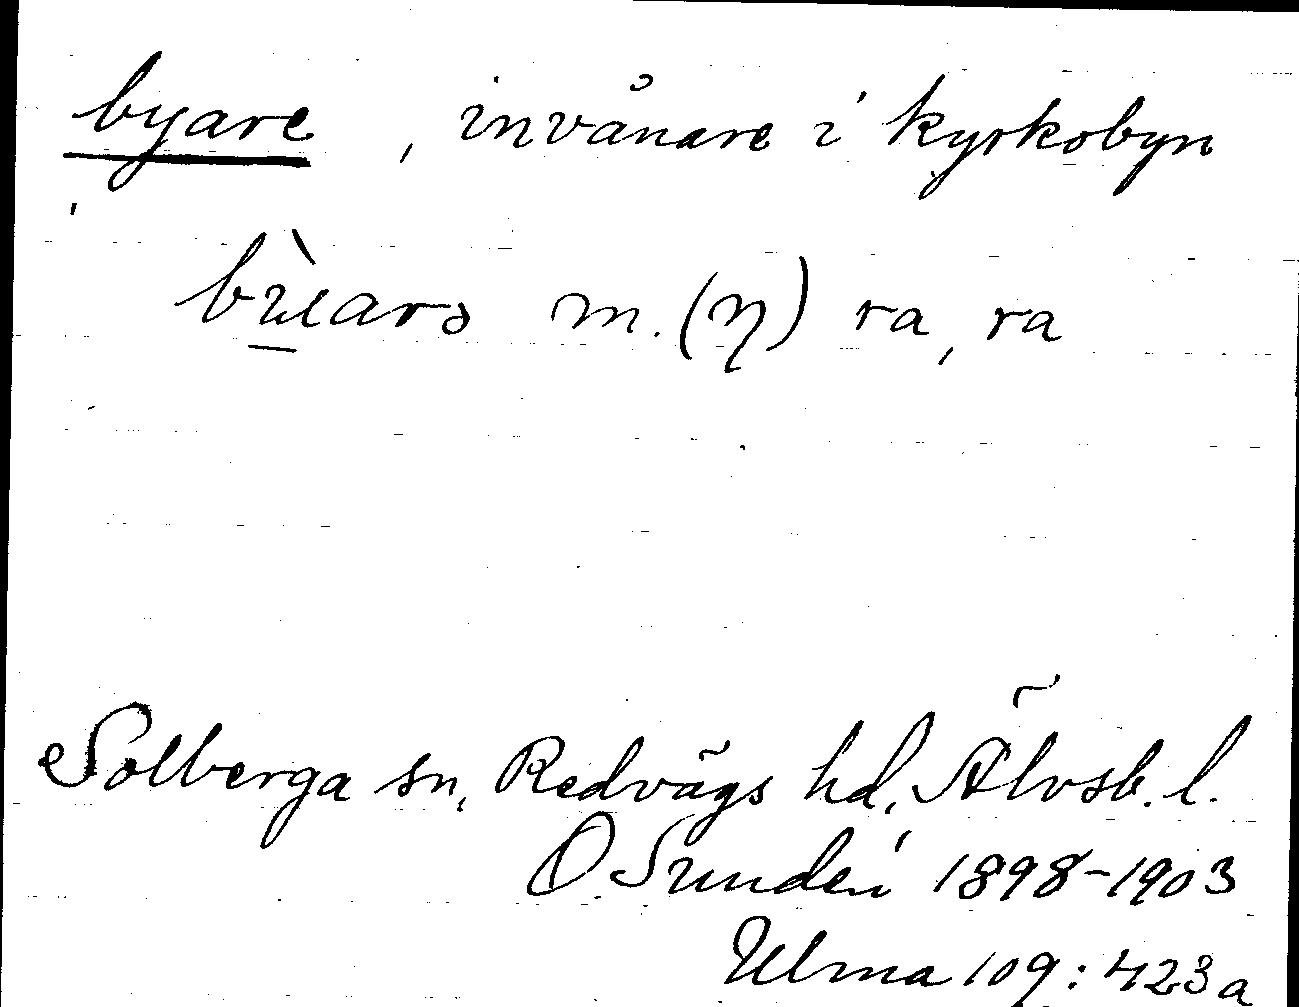 byare, invånare i kyrkobyn
bùarə m. (η) ra, ra
Solberga sn, Redvägs hd, Älvsb. l.
O Sundén 1898-1903
Ulma 109:423a